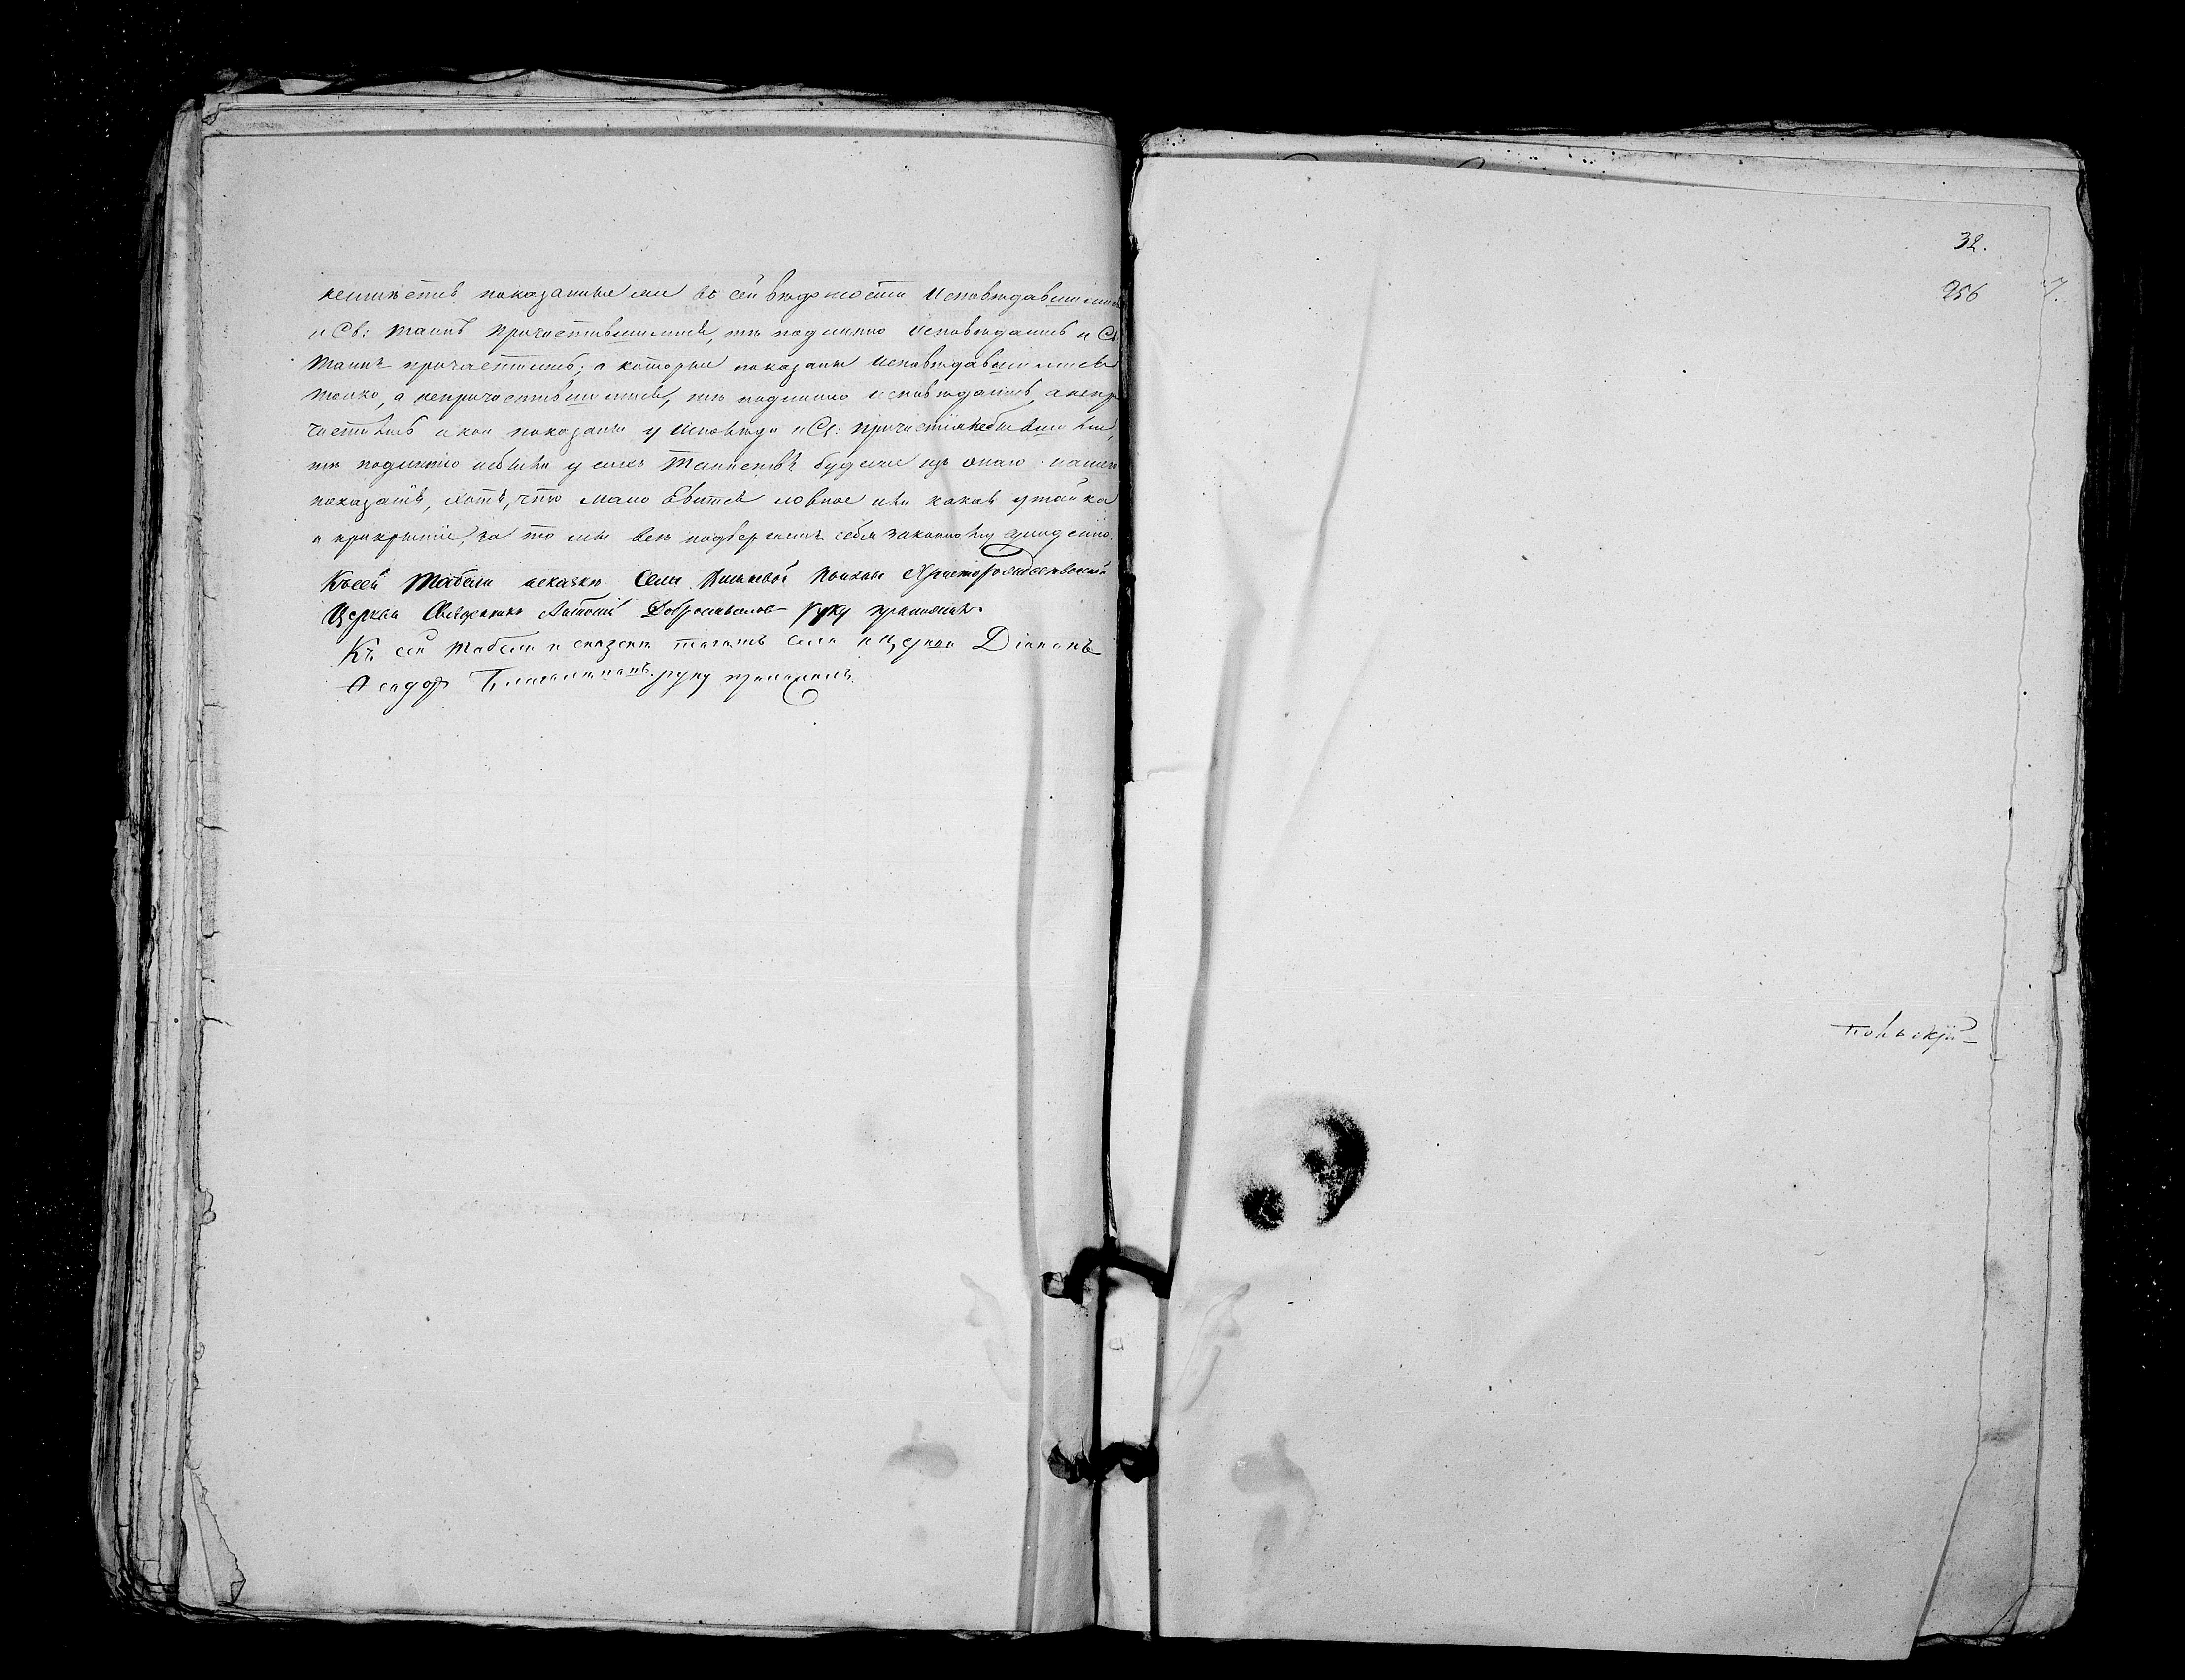 показанные въ сей вѣдомости Исповѣдавшимися
и Св: Таинъ Причастившимися, тѣ подлинно Исповѣдались и С
Таинъ причастились; а которые показаны Исповѣдавшимися
токмо, а непричастившимися, тѣ подлинно исповѣдались, а непр
частились а кои показаны у Исповѣди и Св: Причастія небывшими,
тѣ подлинно небыли у сихъ Таинствъ буде изъ онаго
показанія, хотя, что мало явится ложное или какая утайка
и прикрытіе, за то мы всѣ подвергаемъ себя законному сужденію.
Къ сей Табели и сказкѣ Села Христорождественской
Церкви Священникъ Антоній Добросмысловъ руку приложилъ.
Къ сей табели и сказки тогожъ села и Церкви Діаконъ
руку приложилъ
32.
256